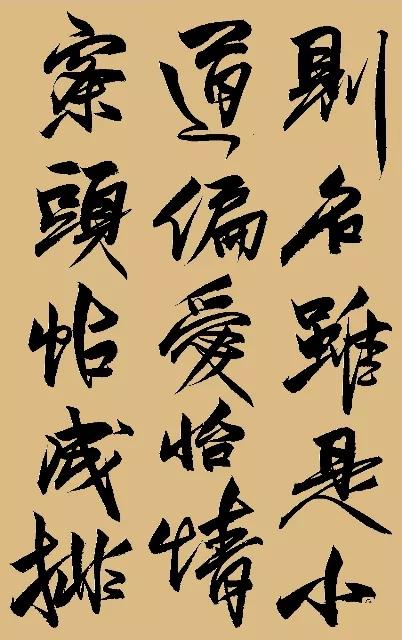 則名雖是小
道偏愛怡情
案頭帖成排